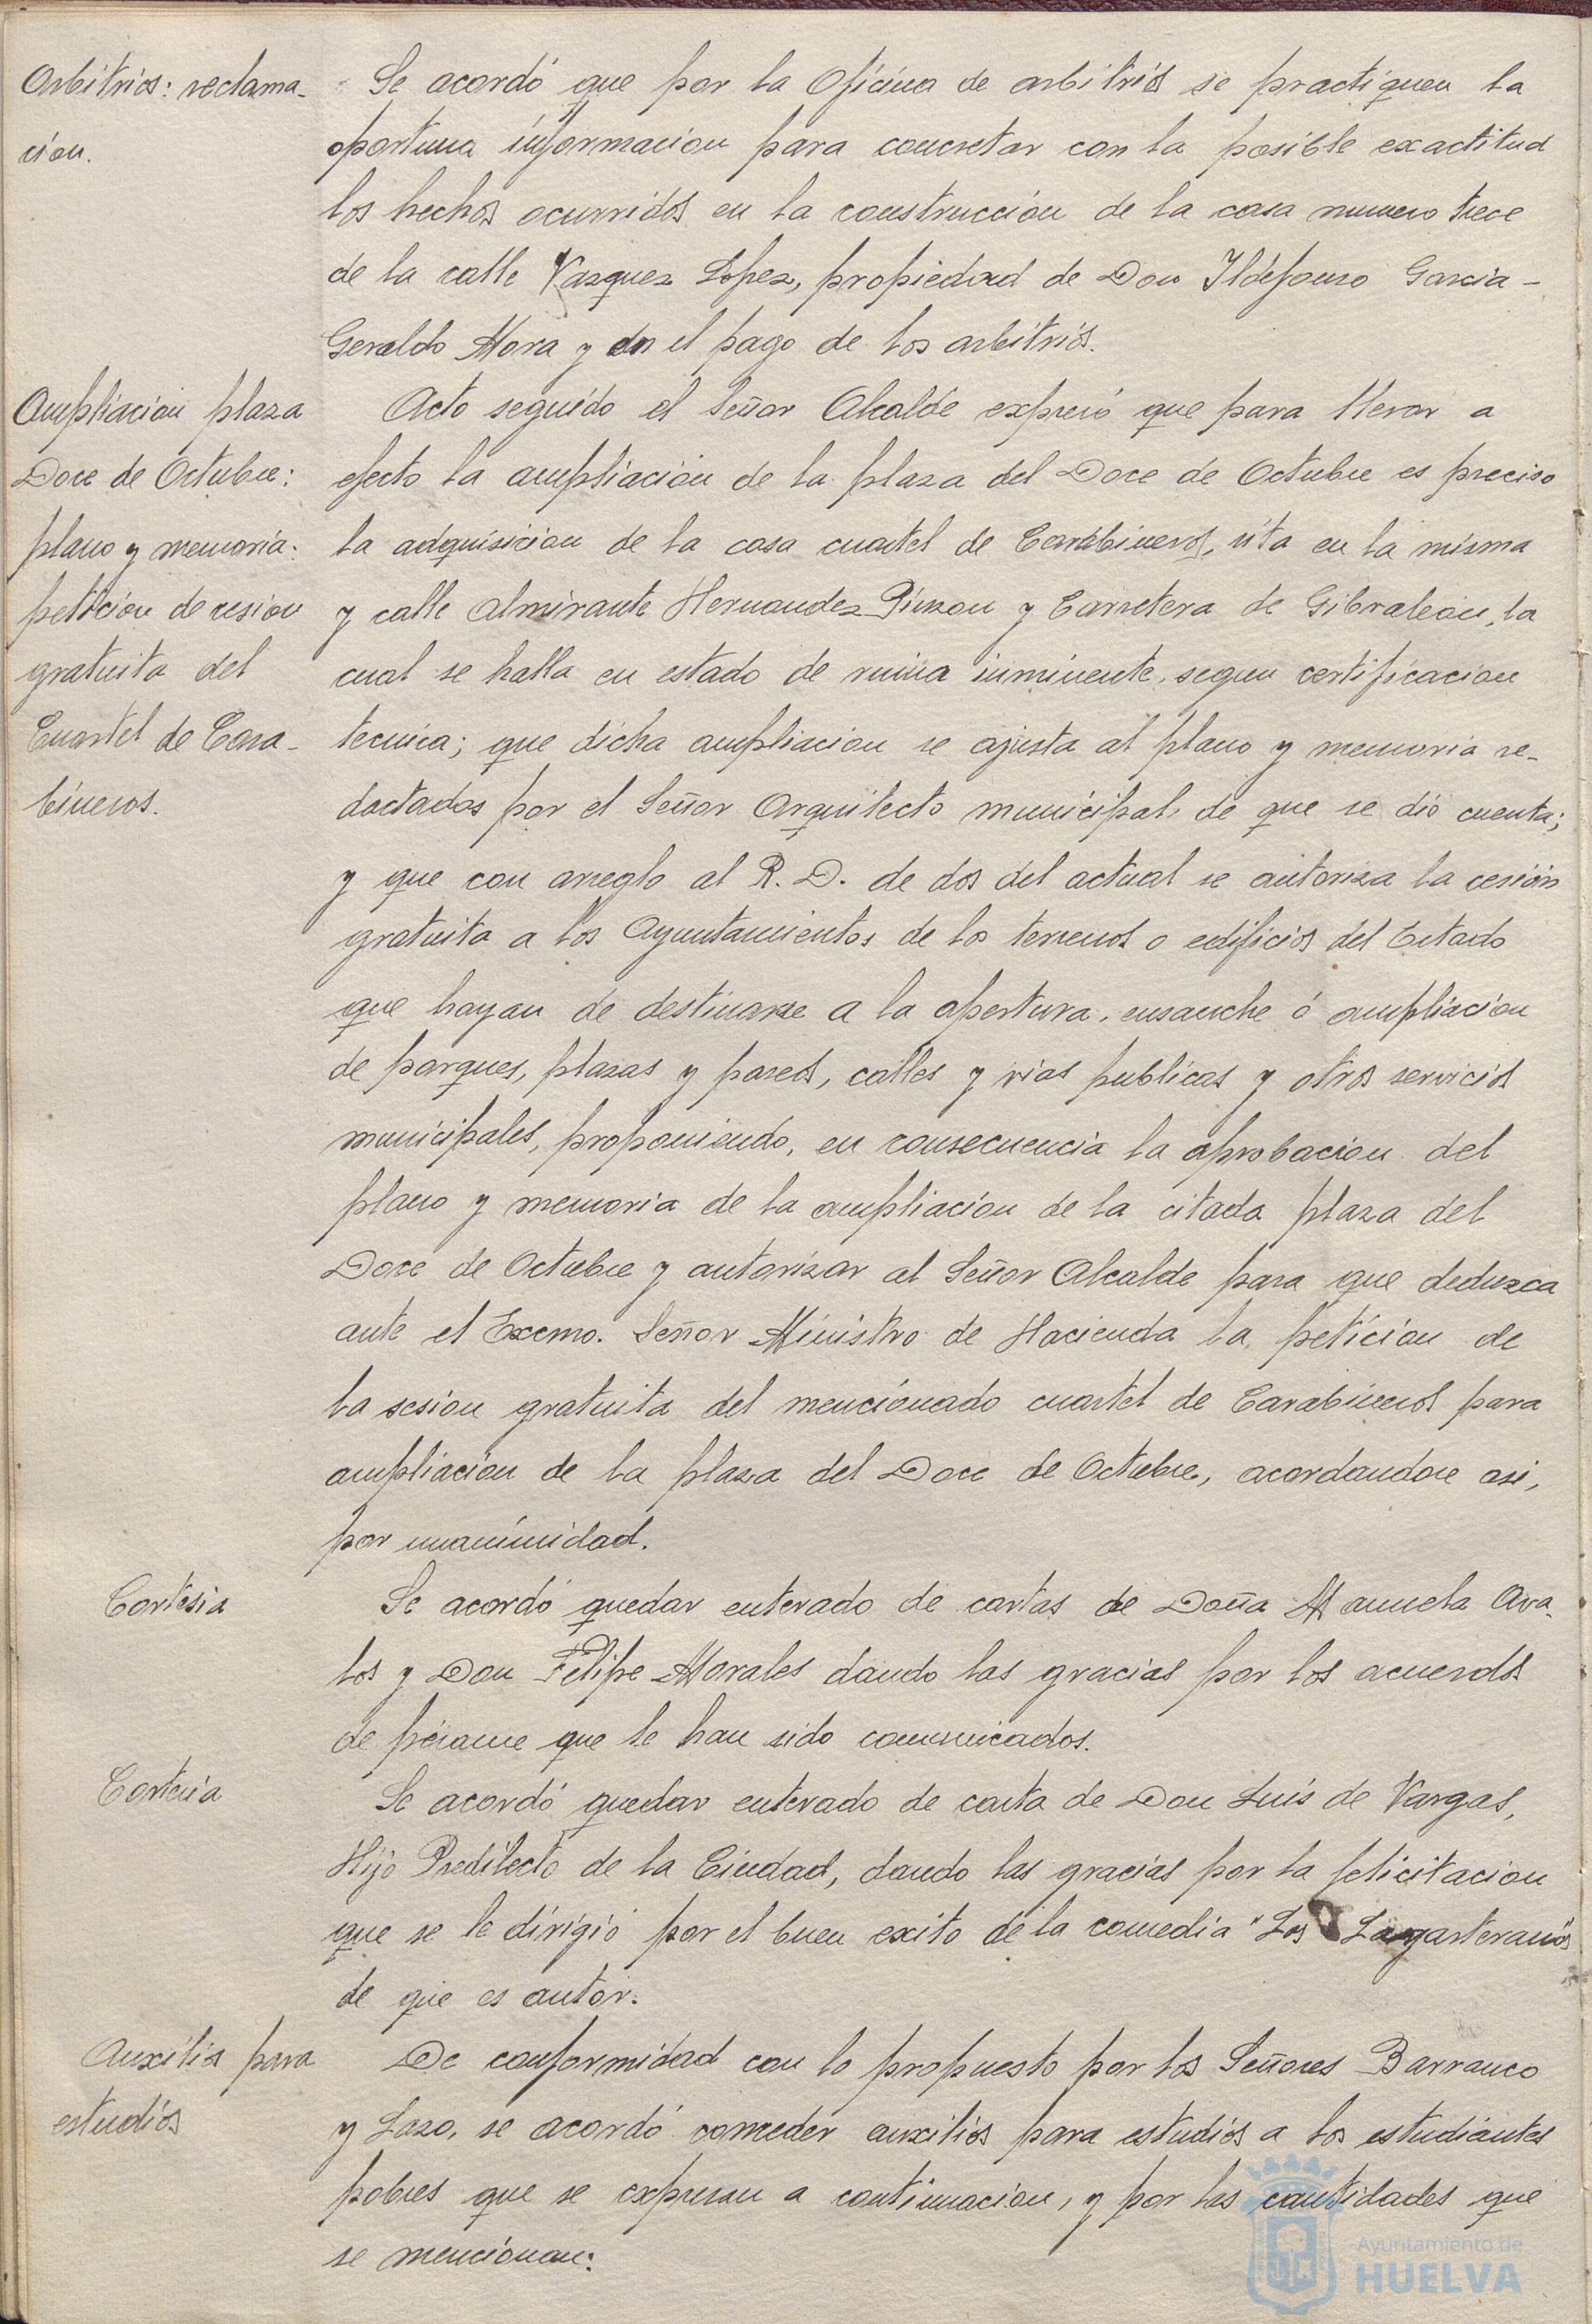 Arbitrios: reclama-
cion.
Se acordó que por la Oficina de arbitrios se practiquen la
oportuna informacion para concretar con la posible exactitud
los hechos ocurridos en la construcción de la casa numero trece
de la calle Vazquez Lopez, propiedad de Don Ildefonso Garcia-
Geraldo Mora y en el pago de los arbitrios.
Ampliacion plaza
Doce de Octubre:
plano y memoria:
petición de cesion
gratuita del
Cuartel de Cara-
bineros.
Acto seguido el Señor Alcalde expresó que para llevar a
efecto la ampliación de la plaza del Doce de Octubre es preciso
la adquisicion de la casa cuartel de Carabineros, sita en la misma
y calle Almirante Hernandez Pinzon y Carretera de Gibraleón, la
cual se halla en estado de ruina inminente, segun certificacion
tecnica; que dicha ampliacion se ajusta al plano y memoria re-
dactados por el Señor Arquitecto municipal, de que se dió cuenta;
y que con arreglo al R. D. de dos del actual se autoriza la cesión
gratuita a los Ayuntamientos de los terrenos o edificios del Estado
que hayan de destinarse a la apertura, ensanche ó ampliacion
de parques, plazas y paseos, calles y vias publicas y otros servicios
municipales, proponiendo, en consecuencia la aprobacion del
plano y memoria de la ampliación de la citada plaza del
Doce de Octubre y autorizar al Señor Alcalde para que deduzca
ante el Excmo. Señor Ministro de Hacienda la petición de
la sesion gratuita del mencionado cuartel de Carabineros para
ampliación de la plaza del Doce de Octubre, acordandose asi,
por unanimidad.
Cortesia
Se acordó quedar enterado de cartas de Doña Manuela Ava-
los y Don Felipe Morales dando las gracias por los acuerdos
de pésame que le han sido comunicados.
Cortesia
Se acordó quedar enterado de carta de Don Luis de Vargas,
Hijo Predilecto de la Ciudad, dando las gracias por la felicitacion
que se le dirigió por el buen exito de la comedia "Los Lagarteranos"
de que es autor.
Auxilio para
estudios
De conformidad con lo propuesto por los Señores Barranco
y Lazo, se acordó conceder auxilios para estudios a los estudiantes
pobres que se expresan a continuacion, y por las cantidades que
se mencionan:
Ayuntamiento de
HUELVA